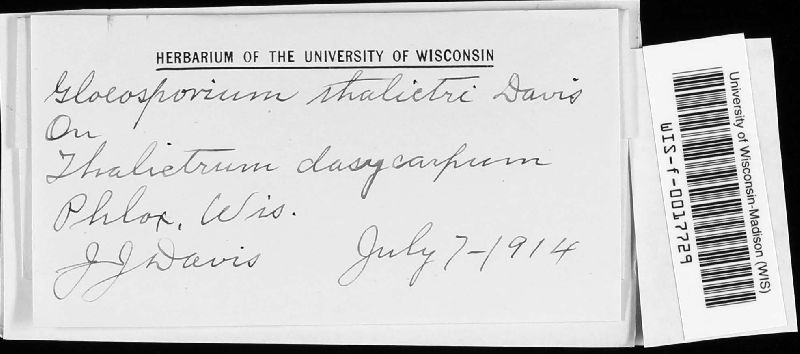 HERBARIUM OF THE UNIVERSITY OF WISCONSIN
Gloeosporium thalictri Davis
On
Thalictrum dasycarpum
Phlox, Wis.
J J Davis July 7-1914
University of Wisconsin-Madison (WIS)
WIS-f-0017729